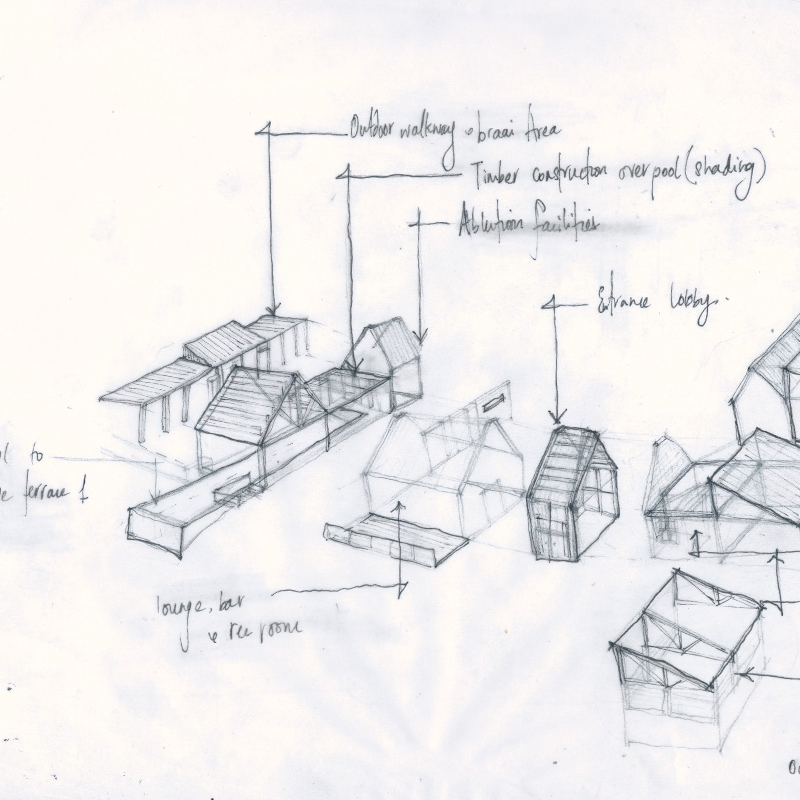 Outdoor walkway & braai Area
Timber construction over pool (shading)
Ablution facilities
Entrance lobby.
to
terrace &
lounge, bar
& rec room